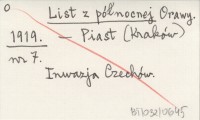 List z północnej Orawy.
1919. — Piast (Kraków)
nr 7.
Inwazja Czechów.